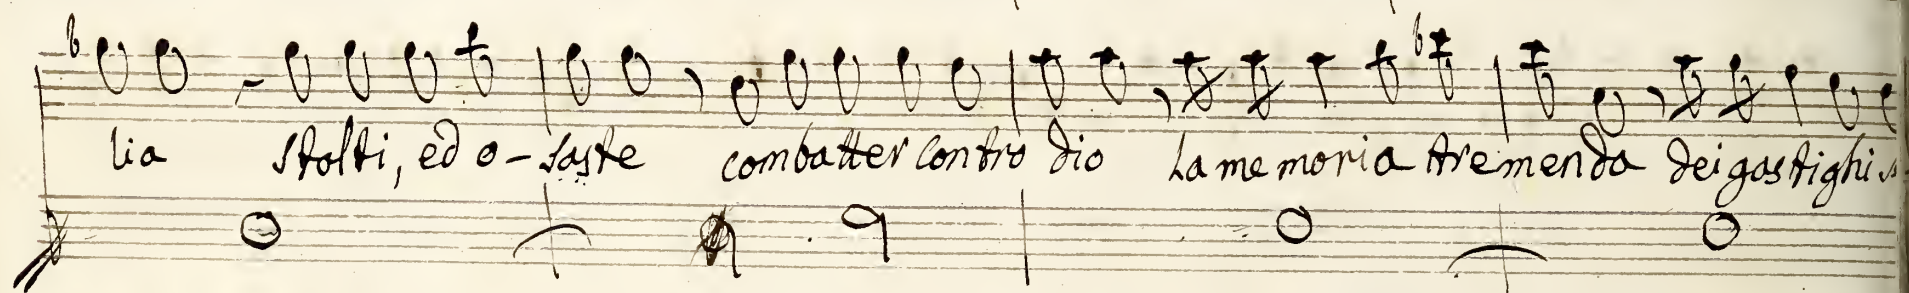 lia stolti, ed o-saste combatter contro dio La memoria tremenda dei gastighi